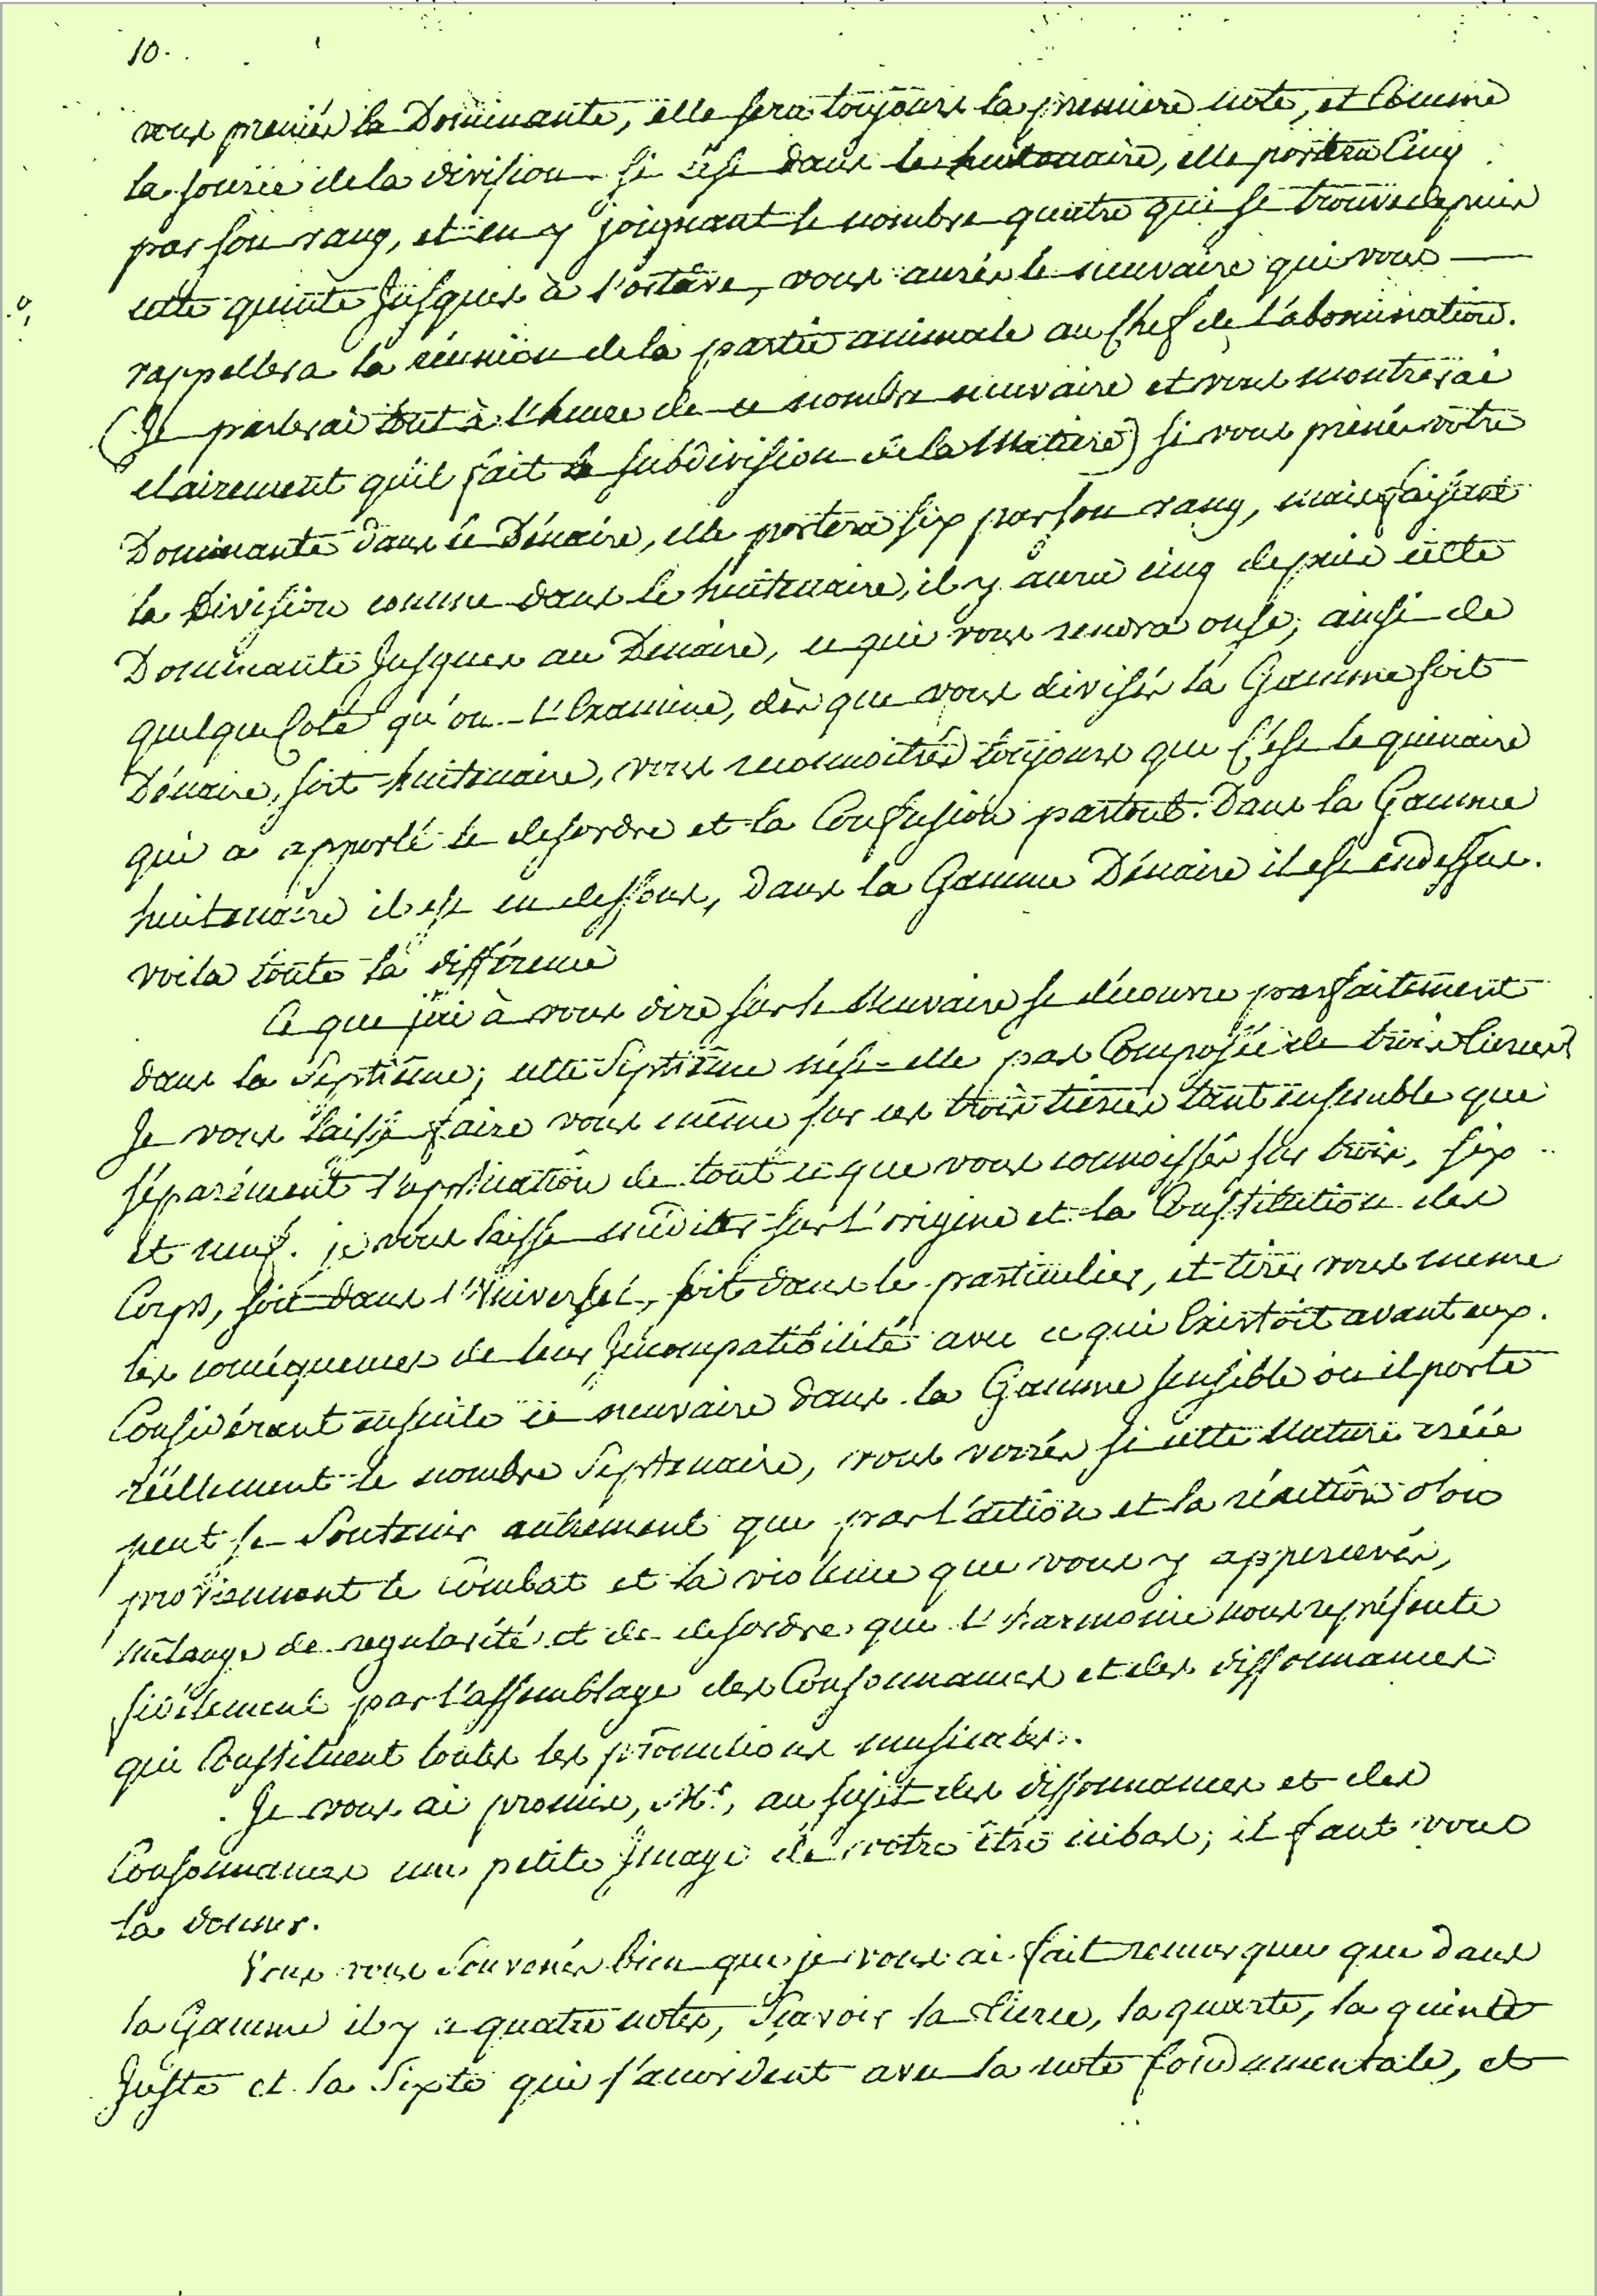 10.
vous preniés la Dominante, elle sera toujours la premiere note, et Comme
la source de la division. si c'est dans le huitenaire, elle portera Cinq
par son rang, et en y joignant le nombre quatre qui se trouve depuis
cette quinte Jusques à l'octâve, vous aurés le neuvaire qui vous
rappellera la réunion de la partie animale au Chef de l'abomination.
(Je parlerai tout à l'heure de ce nombre neuvaire et vous montrerai
clairement qu'il fait la subdivision de la Matiere) si vous prenés votre
Dominante dans le Dénaire, elle portera six par son rang, mais faisant
la Division comme dans le huitenaire, il y aura cinq depuis cette
Dominante Jusques au Dénaire, ce qui vous rendra onse; ainsi de
quelque Coté qu'on l'Examine, dès que vous divisés la Gamme soit
Dénaire, soit huitenaire, vous reconnoitrés toujours que C'est le quinaire
qui a apporté le desordre et la Confusion partout. Dans la Gamme
huitenaire il est en dessous, Dans la Gamme Dénaire il est en dessus.
voila toute la différence
Ce que j'ai à vous dire sur le Neuvaire se découvre parfaitement
dans la Septième; cette Septième n'est-elle pas Composée de trois tierces
Je vous laisse faire vous même sur ces trois tierces tant ensemble que
séparément l'application de tout ce que vous connoissés sur trois, six
et neuf. je vous laisse méditer sur l'origine et la Constitution des
Corps, soit dans l'Universel, soit dans le particulier, et tirer vous meme
les conséquences de leur Incompatibilité avec ce qui Existoit avant eux.
Considérant ensuite ce neuvaire dans la Gamme sensible où il porte
réellement le nombre Septenaire, vous verrés si cette Nature créée
peut se Soutenir autrement que par l'action et la réaction d'où
proviennent le combat et la violence que vous y appercevés,
mélange de regularité et de desordre que l'harmonie nous représente
si vîlement par l'assemblage des Consonnances et des dissonnances
qui Constituent toutes les productions musicales.
Je vous ai promis, Mr., au sujet des dissonnances et des
Consonnances une petite Image de notre être icibas; il faut vous
la donner.
Vous vous Souvenés bien que je vous ai fait remarquer que dans
la Gamme il y a quatre notes, Sçavoir la tierce, la quarte, la quinte
Juste et la Sixte qui s'accordent avec la note fondamentale, et